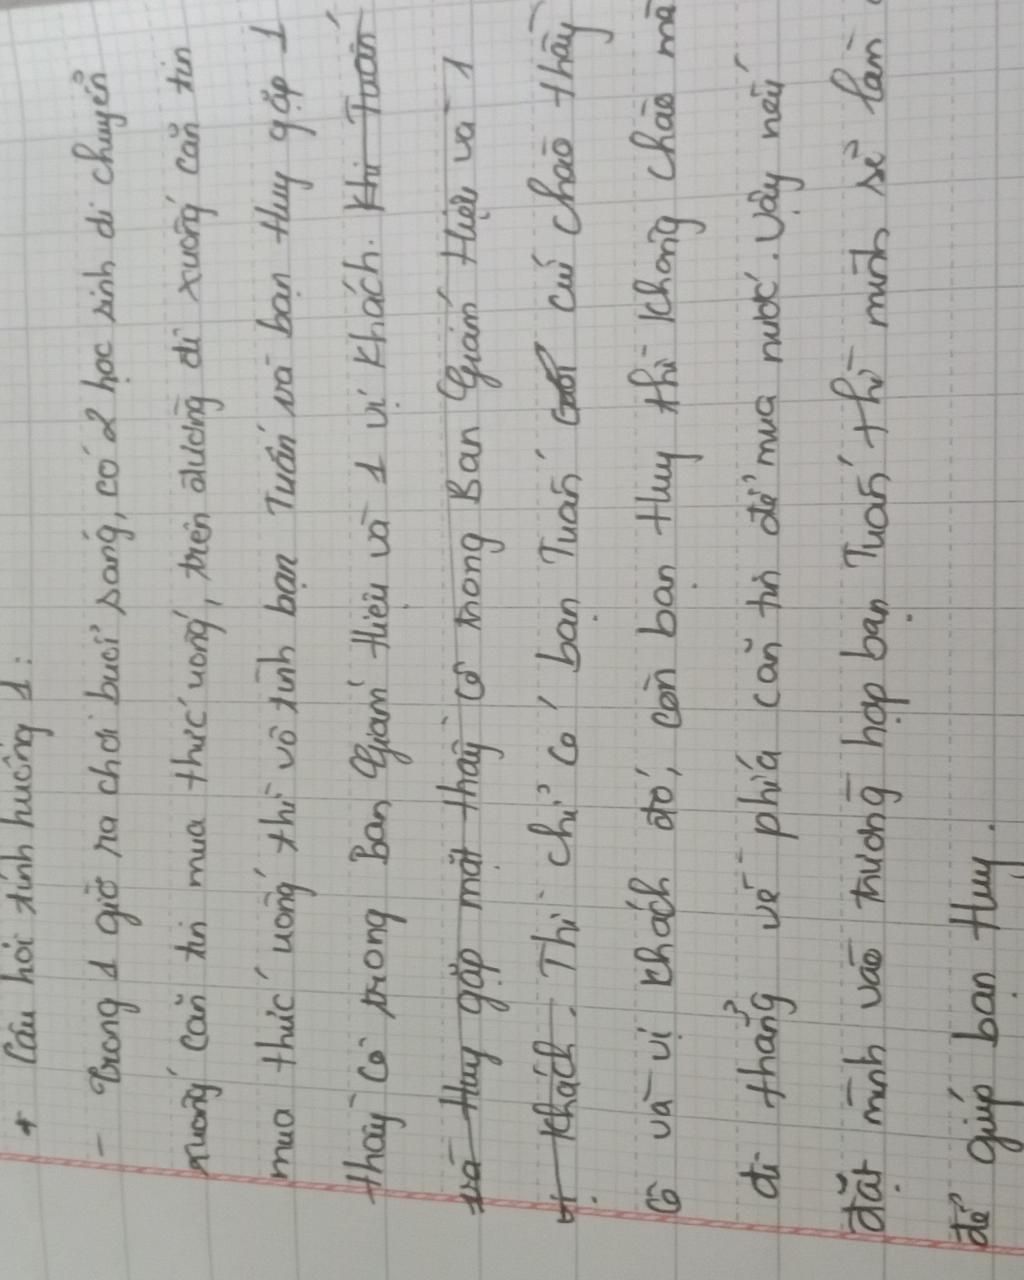 + Câu hỏi tính huống 1:
- Trong 1 giờ ra chơi buổi sáng, có 2 học sinh di chuyển
xuống căn tin mua thức uống, trên đường đi xuống căn tin
mua thức uống thì vô tình bạn Tuấn và bạn Huy gặp 1
thầy cô trong Ban Giám Hiệu và 1 vị khách. Khi Tuấn
và Huy gặp mặt thầy cô trong Ban Giám Hiệu và 1
vị khách. Thì chỉ có bạn Tuấn cuối cúi chào thầy
cô và vị khách đó, còn bạn Huy thì không chào mà
đi thẳng về phía căn tin để mua nước. Vậy nếu
đặt mình vào trường hợp bạn Tuấn thì mình sẽ làm
để giúp bạn Huy.